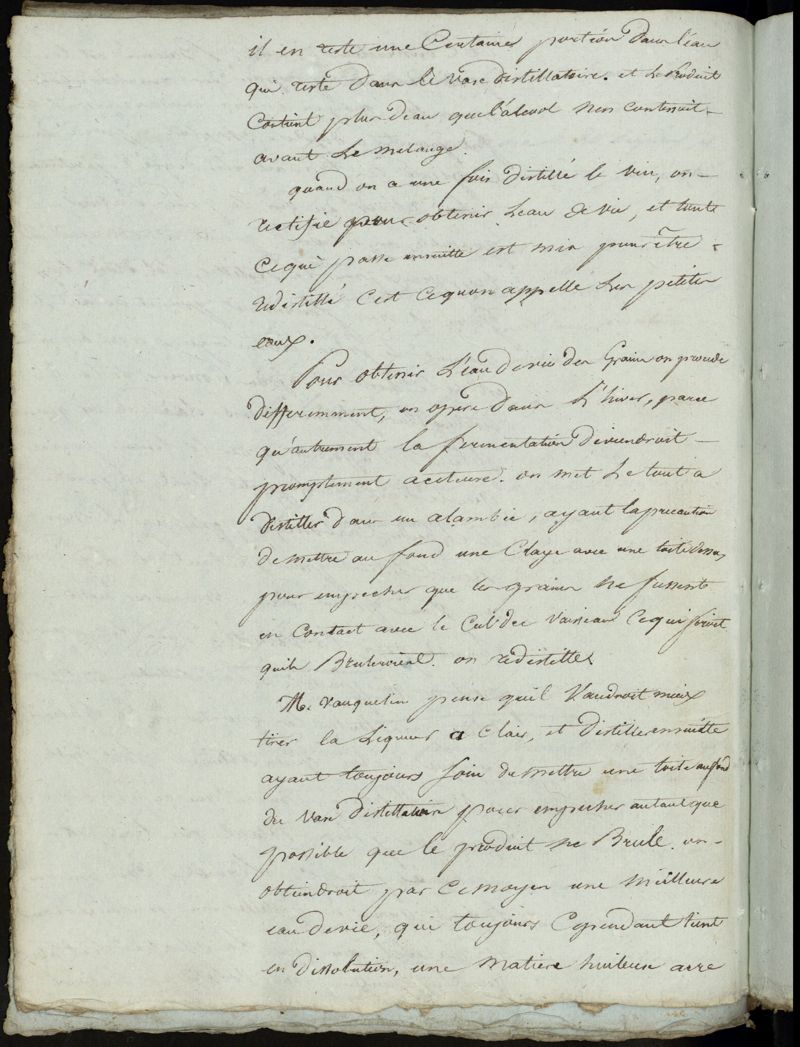 il en reste une Certaines portion dans l'eau
qui reste dans le vase distillatoire. et le produit
Contient plus d'eau que l'alcool n'en contenoit -
avant le melange.
quand on a une fois distillé le vin, on -
rectifie pour obtenir l'eau de vie, et toute
ce qui passe ensuitte est mis pour être -
redistillé c'est ce qu'on appelle les petites
eaux.
Pour obtenir L'eau de vie des Grains on procede
differemment, on opere dans L'hiver, parce
qu'autrement la fermentation deviendroit -
promptement aceteuse. on met le tout a
distiller dans un alambic, ayant la precaution
de mettre au fond une Claye avec une toile dessus,
pour empecher que les grains ne fussent
en Contact avec le Cul du Vaisseau ce qui feroit
qu'ils Bruleroient. on redistille.
M. Vauquelin pense qu'il Vaudroit mieux
tirer la Liqueur a Clair, et distiller ensuitte
ayant toujours soin de mettre une toile au fond
du Vase distillatoire pour empecher autant que
possible que le produit ne Brule. on -
obtiendroit par ce moyen une meilleure
eau de vie, qui toujours Cependant tient
en dissolution, une matiere huileuse acre